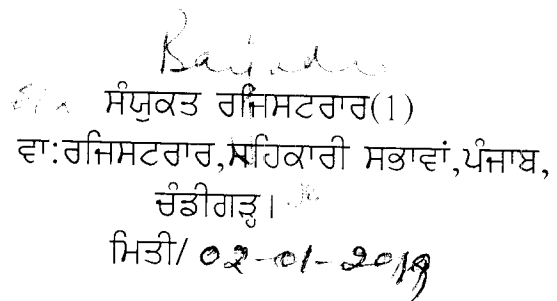 ਸੰਯੁਕਤ ਰਜਿਸਟਰਾਰ(1)
ਵਾ:ਰਜਿਸਟਰਾਰ,ਸਹਿਕਾਰੀ ਸਭਾਵਾਂ,ਪੰਜਾਬ,
ਚੰਡੀਗੜ੍ਹ।
ਮਿਤੀ/ 02-01-2019